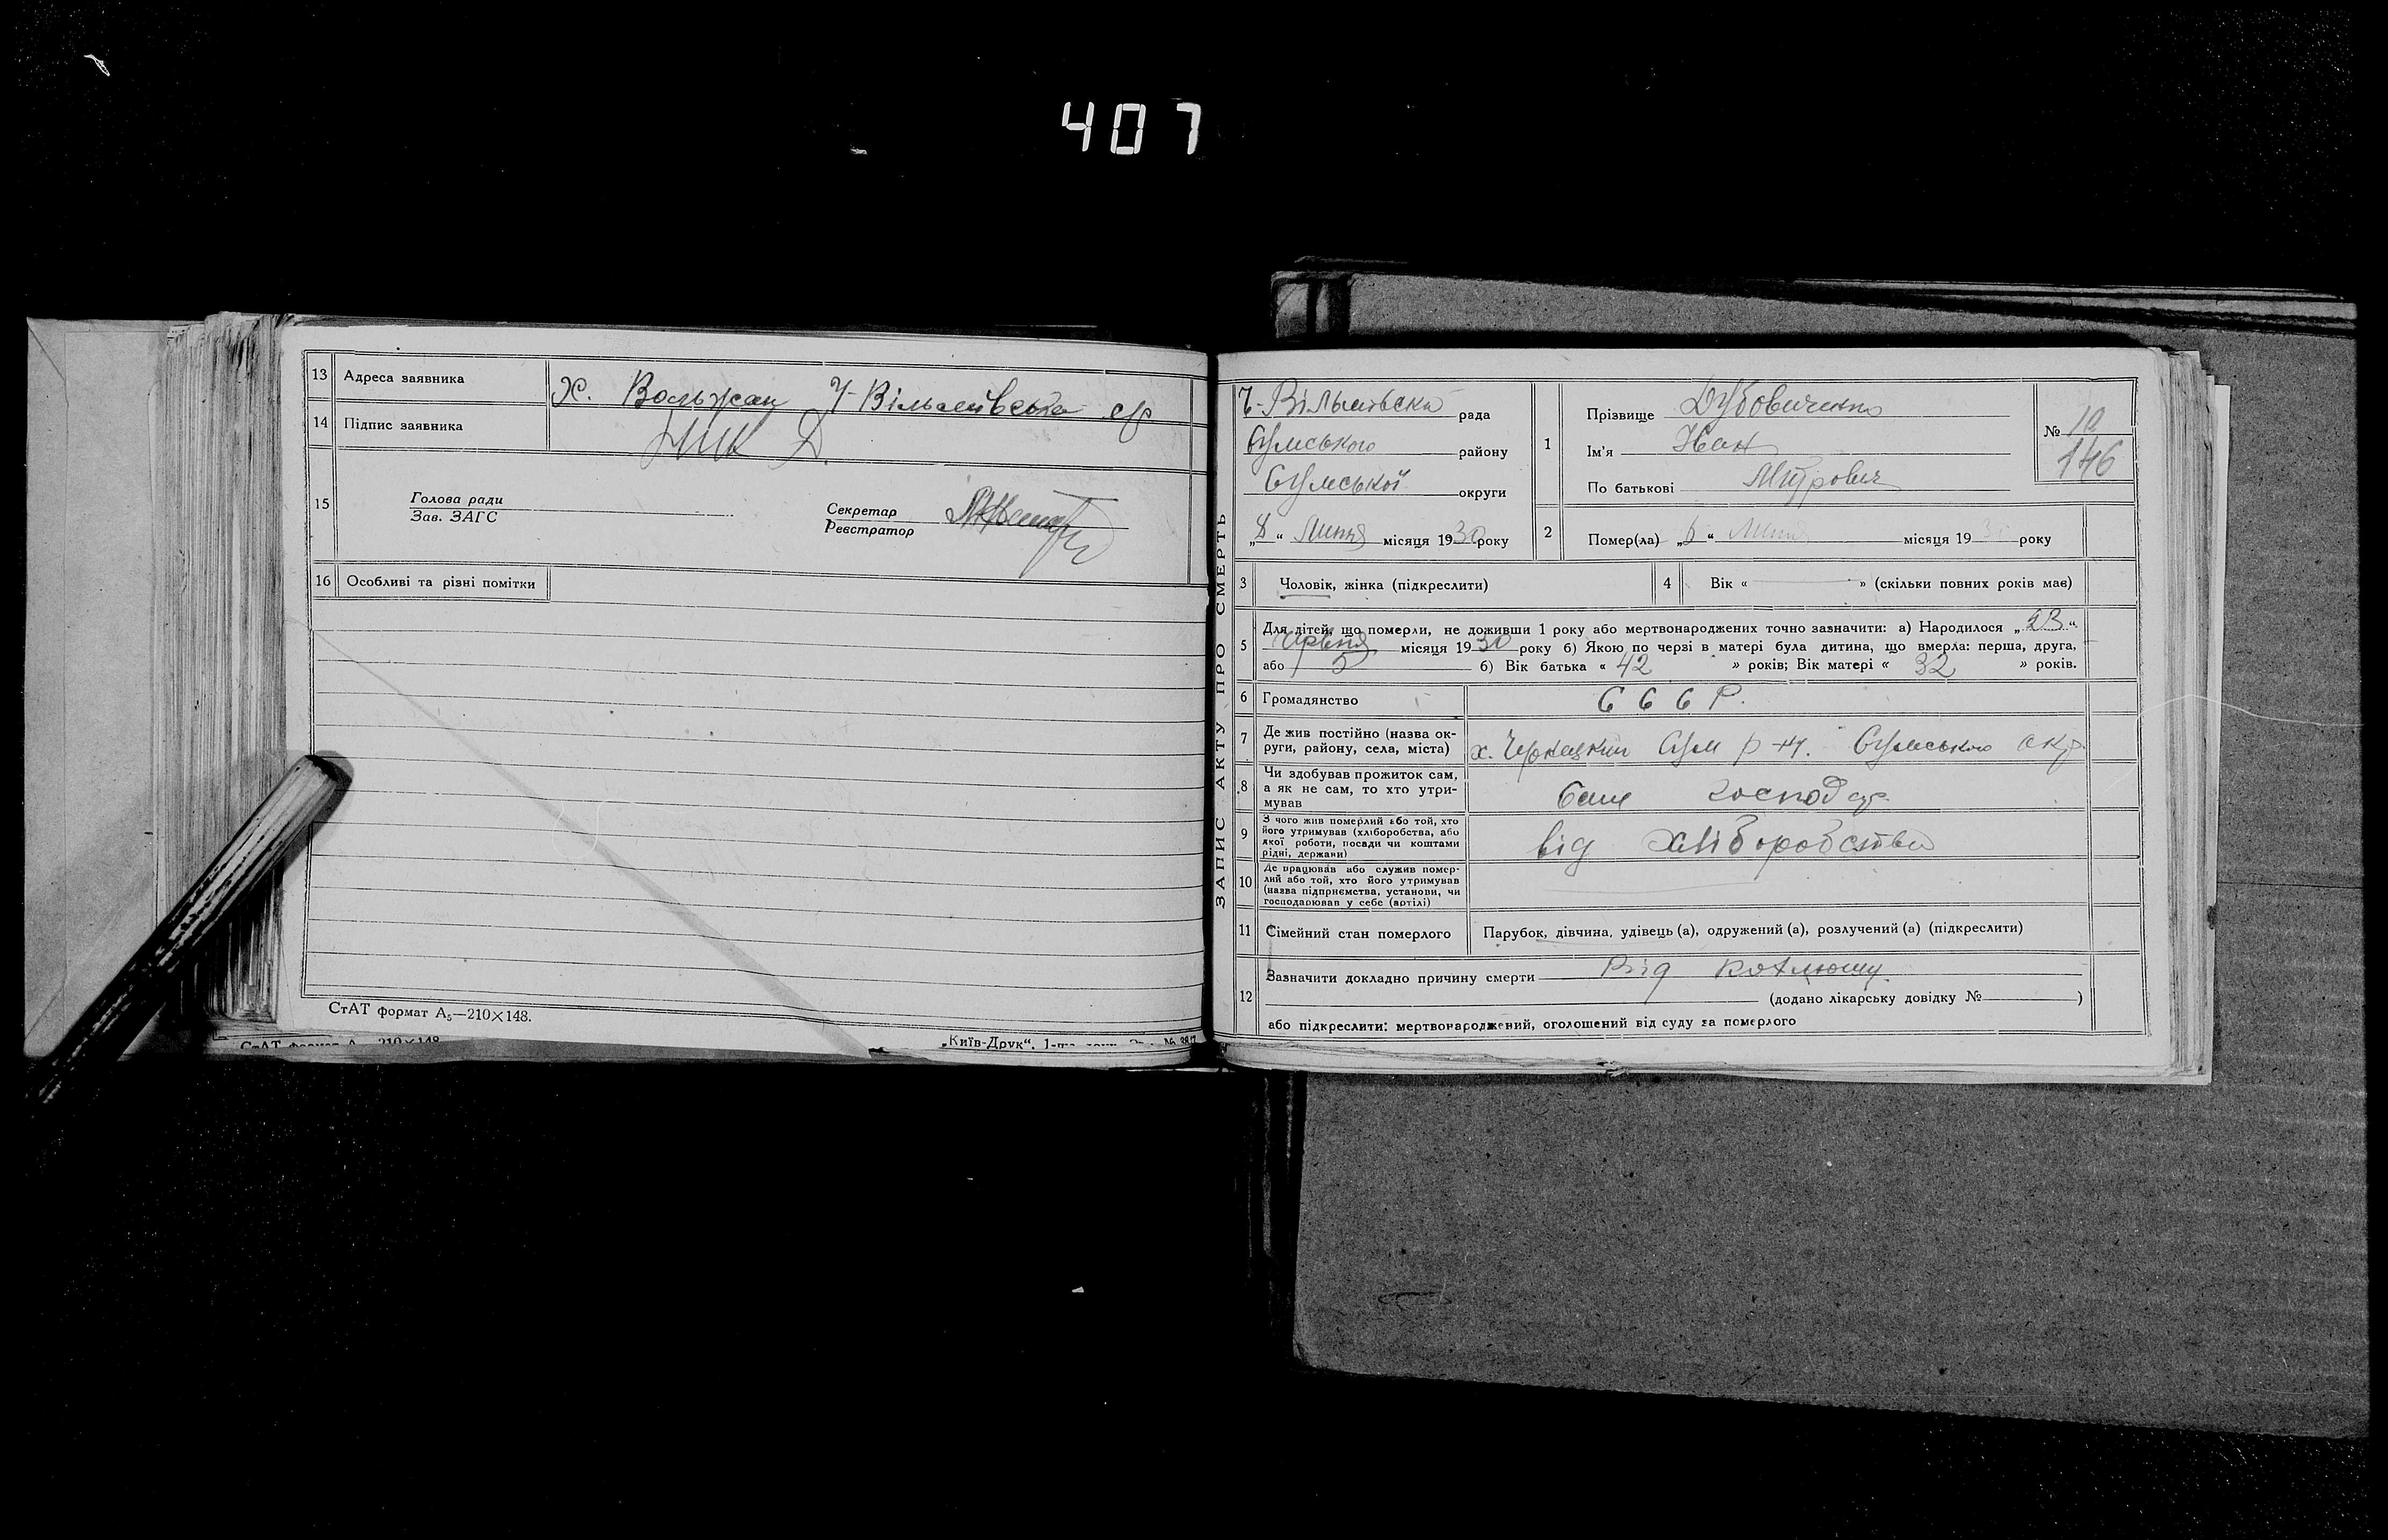 407
13 Адреса заявника Х. Вольжан Ч-Вільшівська с/р
14 Підпис заявника
15 Голова ради
Зав. ЗАГС
Секретар
Реєстратор
16 Особливі та різні помітки
СтАТ формат А₅—210×148.
СтАТ формат А 210×148
„Київ-Друк“, 1-ша
ЗАПИС АКТУ ПРО СМЕРТЬ
Ч-Вільшівська рада
Сумського району
Сумської округи
„8“ Липня місяця 1930 року
1 Прізвище Дубовиченко
Ім'я Іван
По батькові
№ 10
146
2 Помер(ла) „8“ Липня місяця 1930 року
3 Чоловік, жінка (підкреслити)
4 Вік «—» (скільки повних років має)
5 Для дітей, що померли, не доживши 1 року або мертвонароджених точно зазначити: а) Народилося „23“
Червня місяця 1930 року б) Якою по черзі в матері була дитина, що вмерла: перша, друга,
або 5 б) Вік батька «42» років; Вік матері «32» років.
6 Громадянство С С С Р.
7 Де жив постійно (назва ок-
руги, району, села, міста) х. Сум р-н. Сумського окр.
8 Чи здобував прожиток сам,
а як не сам, то хто утри-
мував господар
9 З чого жив померлий або той, хто
його утримував (хліборобства, або
якої роботи, посади чи коштами
рідні, держави) від хліборобства
10 Де працював або служив помер-
лий або той, хто його утримував
(назва підприємства, установи, чи
господарював у себе (артілі)
11 Сімейний стан померлого Парубок, дівчина, удівець (а), одружений (а), розлучений (а) (підкреслити)
12 Зазначити докладно причину смерти Від коклюшу
(додано лікарську довідку № )
або підкреслити: мертвонароджений, оголошений від суду за померлого